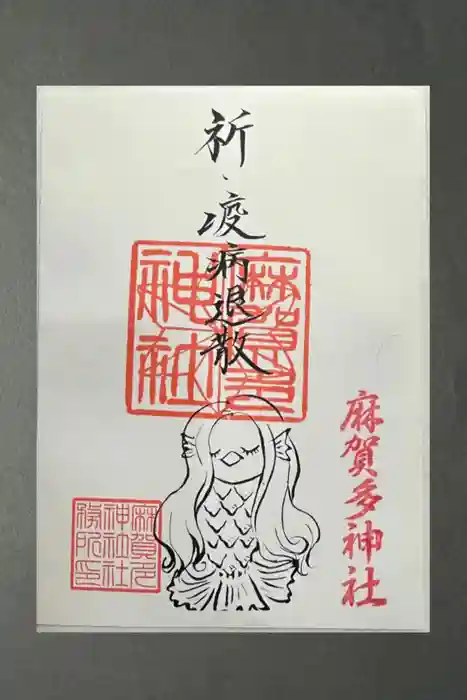 麻賀多神社
祈、疫病退散
麻賀多
神社
麻賀多
神社社
務所印